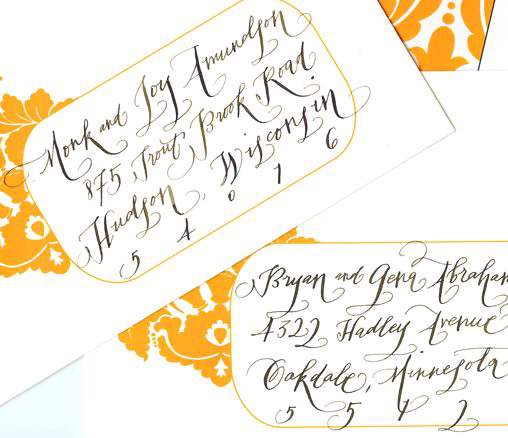 Monk and Joy Amundson
875 Trout Brook Road
Hudson, Wisconsin
54016
Bryan and Gena Abraham
4322 Hadley Avenue
Oakdale, Minnesota
5 5 1 2